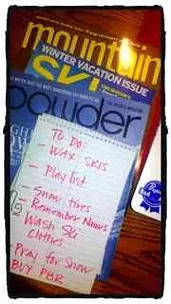 mountain
WINTER VACATION ISSUE
SKI
powder
To Do:
- WAX SKIS
- Play list
- Snow tires
- Remember Nuuns
- Wash Ski
Clothes
Pray for Snow
BUY PBR